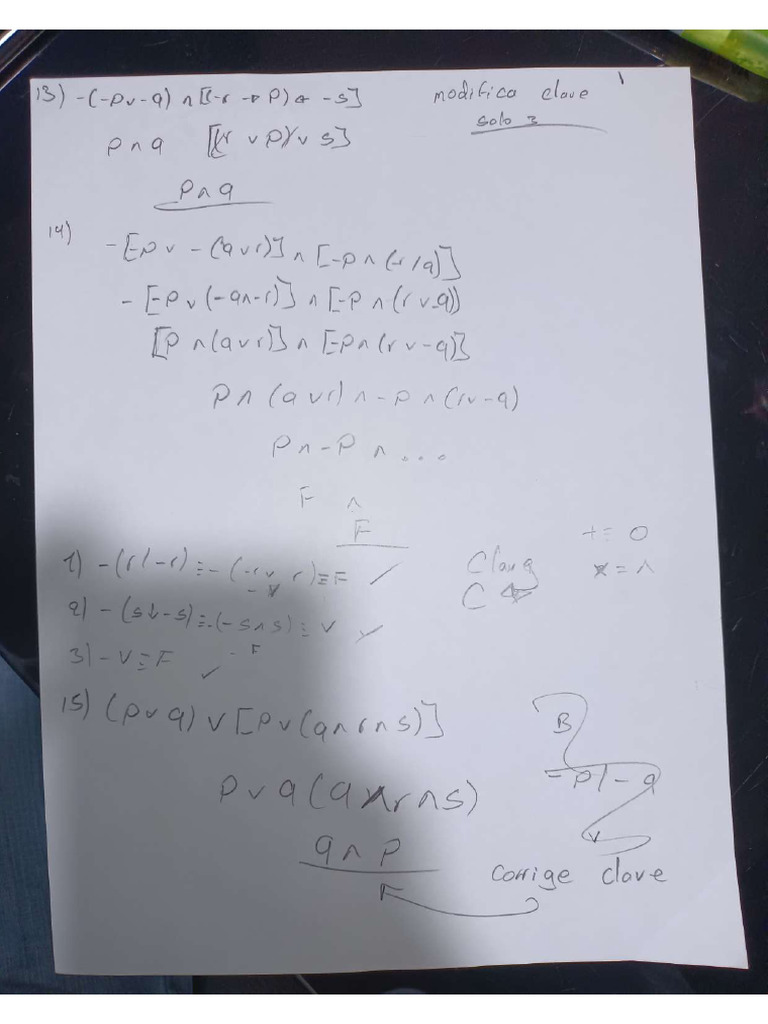 13) -(-p∨-q) ∧ [(-r → p) ← -s] modifica clave
solo 3
p∧q [(r ∨ p) ∨ s]
p∧q
14)
-[-p ∨ -(q∨r)] ∧ [-p ∧ (-r/q)]
-[-p ∨ (-q∧-r)] ∧ [-p ∧ (r ∨-q)]
[p ∧ (q∨r)] ∧ [-p∧(r ∨-q)]
p∧ (q∨r) ∧ -p ∧ (r∨-q)
p∧-p ∧ ...
F ∧
F
1) -(r/-r) ≡ -(-r∨ r) ≡ F ✓
-V
2) -(s↓-s) ≡ -(-s∧s) ≡ V ✓
-F
3) -V≡F ✓
Clave
C
+ ≡ 0
x = ∧
15) (p∨q) ∨ [p∨(q∧r∧s)]
B
p∨q(q∧r∧s)
-p/-q
q∧p
corrige clave